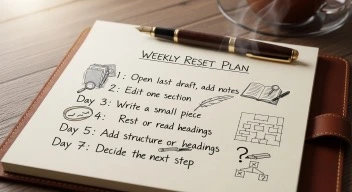 WEEKLY RESET PLAN
1: Open last draft, add notes
2: Edit one section
Day 3: Write a small piece
4: Rest or read headings
Day 5: Add structure or headings
Day 7: Decide the next step
?